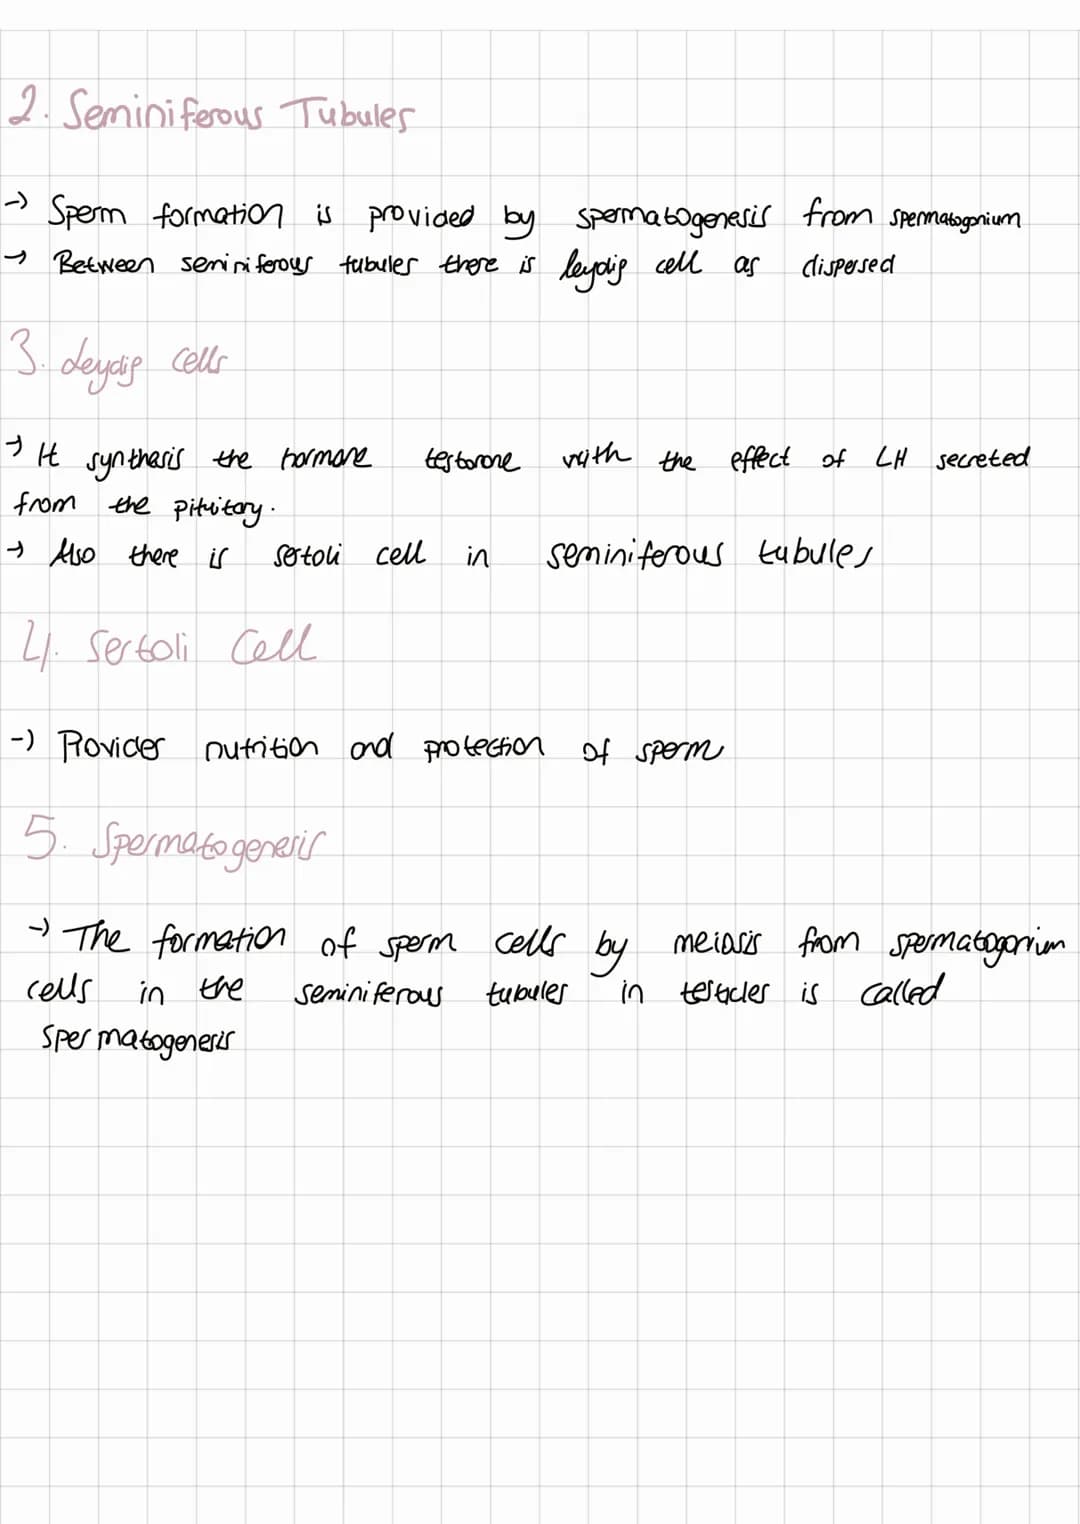 2. Seminiferous Tubules
→ Sperm formation is provided by spermatogenesis from spermatogonium
→ Between seminiferous tubules there is leydig cell as dispersed
3. Leydig cells
→ It synthesis the hormone testorone with the effect of LH secreted
from the pituitary.
→ Also there is sertoli cell in seminiferous tubules
4. Sertoli Cell
→ Provides nutrition and protection of sperm
5. Spermatogenesis
→ The formation of sperm cells by meiosis from spermatogonium
cells in the seminiferous tubules in testicles is called
spermatogenesis